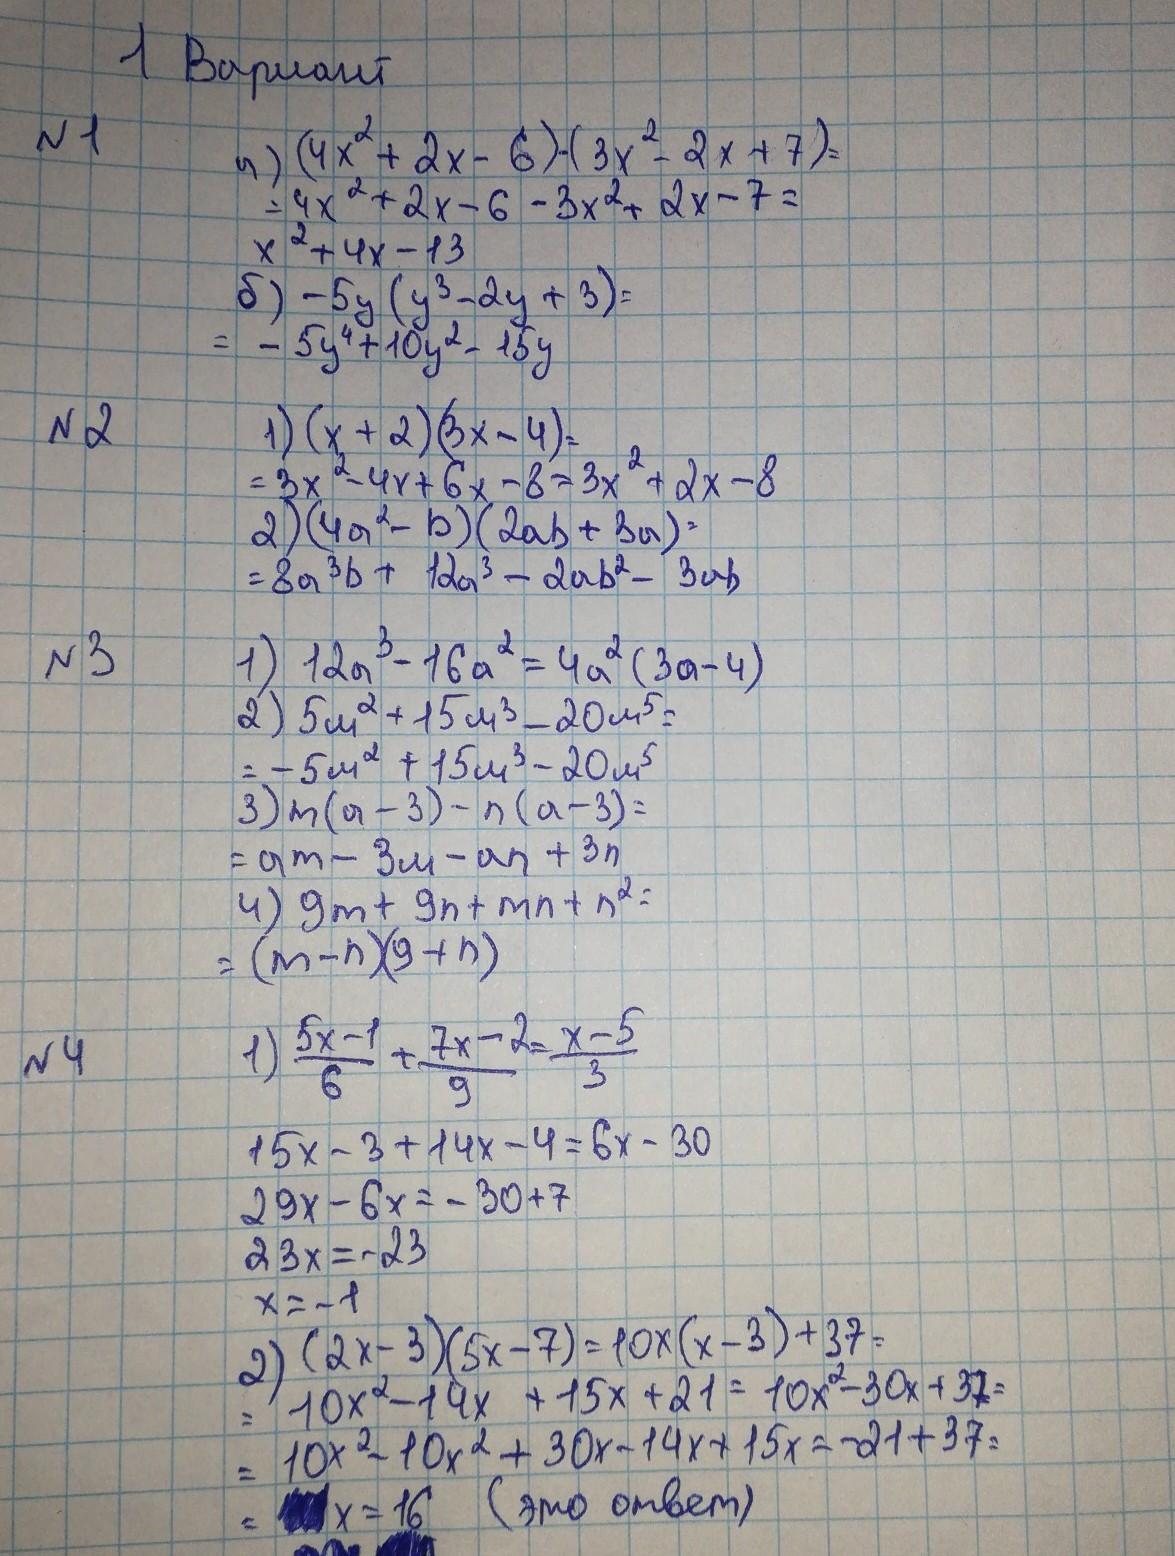 1 Вариант
№1
а) (4x² + 2x - 6) - (3x² - 2x + 7) =
= 4x² + 2x - 6 - 3x² + 2x - 7 =
x² + 4x - 13
б) -5y (y³ - 2y + 3) =
= -5y⁴ + 10y² - 15y
№2
1) (x + 2)(3x - 4) =
= 3x² - 4x + 6x - 8 = 3x² + 2x - 8
2) (4a² - b)(2ab + 3a) =
= 8a³b + 12a³ - 2ab² - 3ab
№3
1) 12a³ - 16a² = 4a² (3a - 4)
2) 5м² + 15м³ - 20м⁵ =
= -5м² + 15м³ - 20м⁵
3) m(a - 3) - n(a - 3) =
= am - 3м - an + 3n
4) 9m + 9n + mn + n² =
= (m - n)(9 + n)
№4
1) (5x - 1)/6 + (7x - 2)/9 = (x - 5)/3
15x - 3 + 14x - 4 = 6x - 30
29x - 6x = -30 + 7
23x = -23
x = -1
2) (2x - 3)(5x - 7) = 10x(x - 3) + 37 =
= 10x² - 14x + 15x + 21 = 10x² - 30x + 37 =
= 10x² - 10x² + 30x - 14x + 15x = -21 + 37 =
= x = 16 (это ответ)